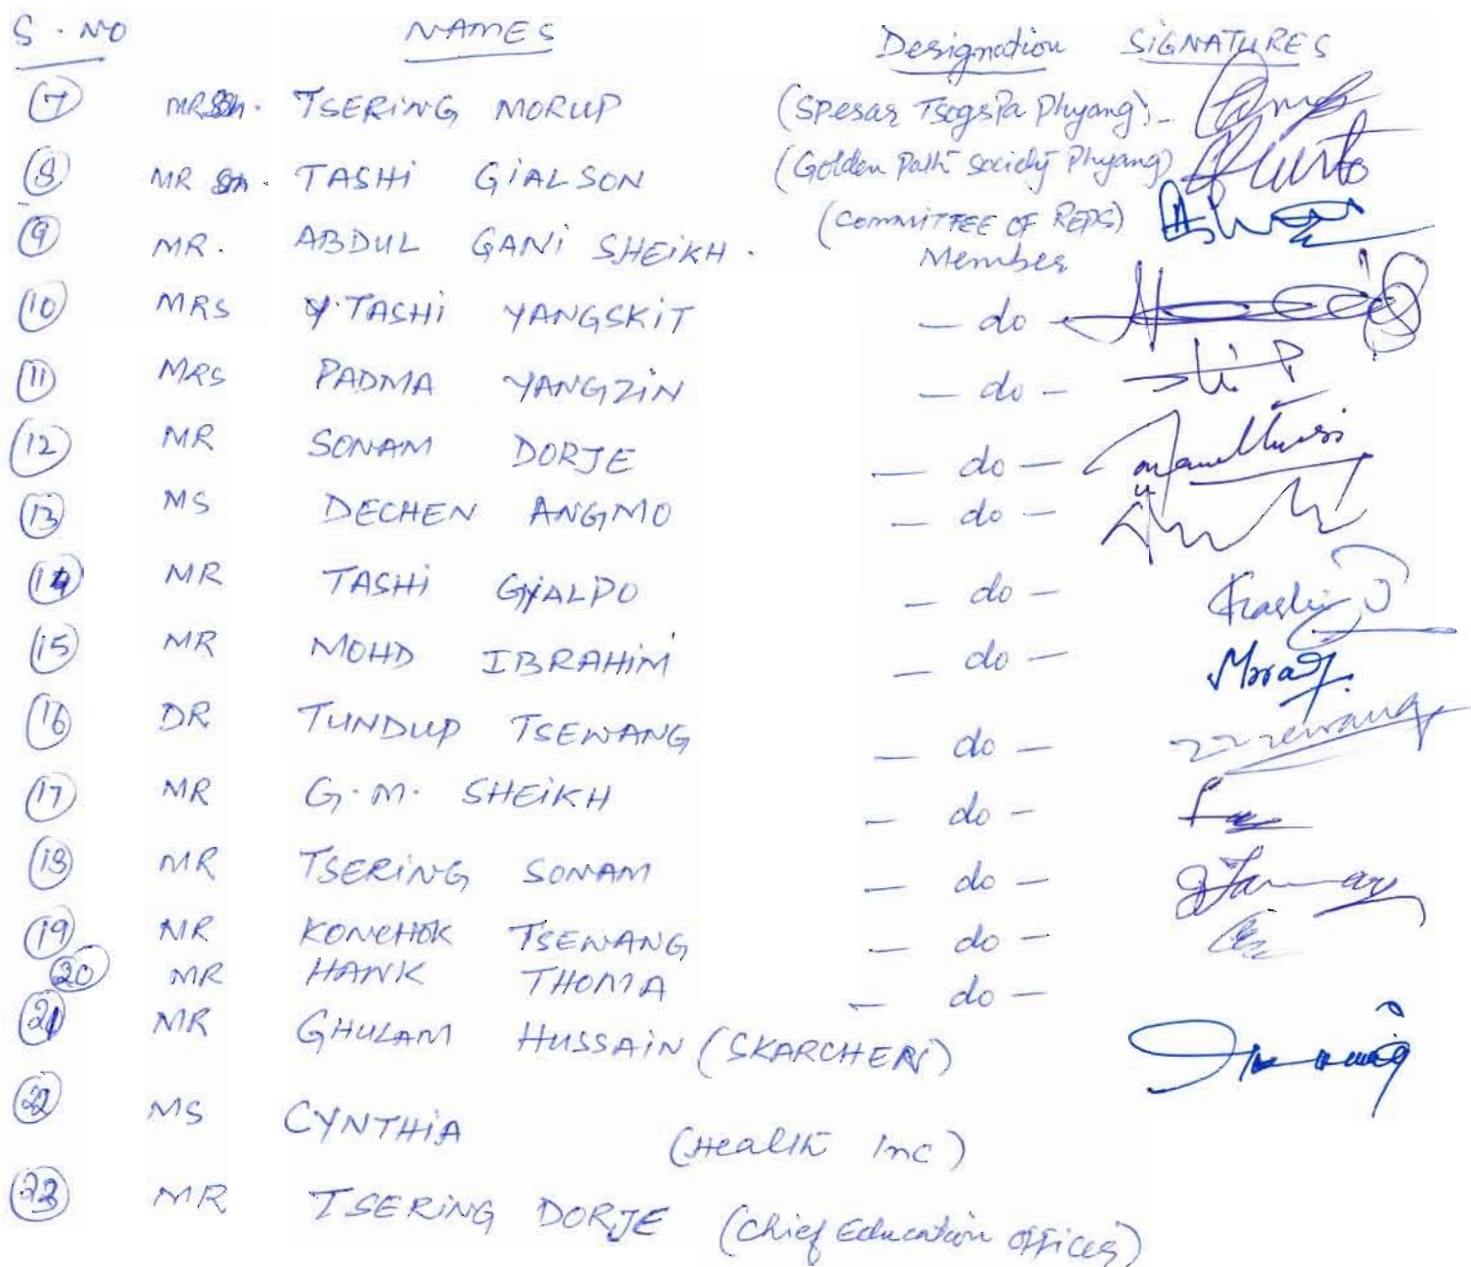 S. NO NAMES Designation SIGNATURES
7 MR TSERING MORUP (Spesar Tsogspa Phyang) -
8 MR TASHI GIALSON (Golden Path Society Phyang)
9 MR. ABDUL GANI SHEIKH. (COMMITTEE OF REPS) Member
10 MRS Y. TASHI YANGSKIT — do —
11 MRS PADMA YANGZIN — do —
12 MR SONAM DORJE — do —
13 MS DECHEN ANGMO — do —
14 MR TASHI GYALPO — do —
15 MR MOHD IBRAHIM — do —
16 DR TUNDUP TSEWANG — do —
17 MR G. M. SHEIKH — do —
18 MR TSERING SONAM — do —
19 MR KONCHOK TSEWANG — do —
20 MR HANK THOMA — do —
21 MR GHULAM HUSSAIN (SKARCHEN)
22 MS CYNTHIA (Health Inc)
23 MR TSERING DORJE (Chief Education Officer)